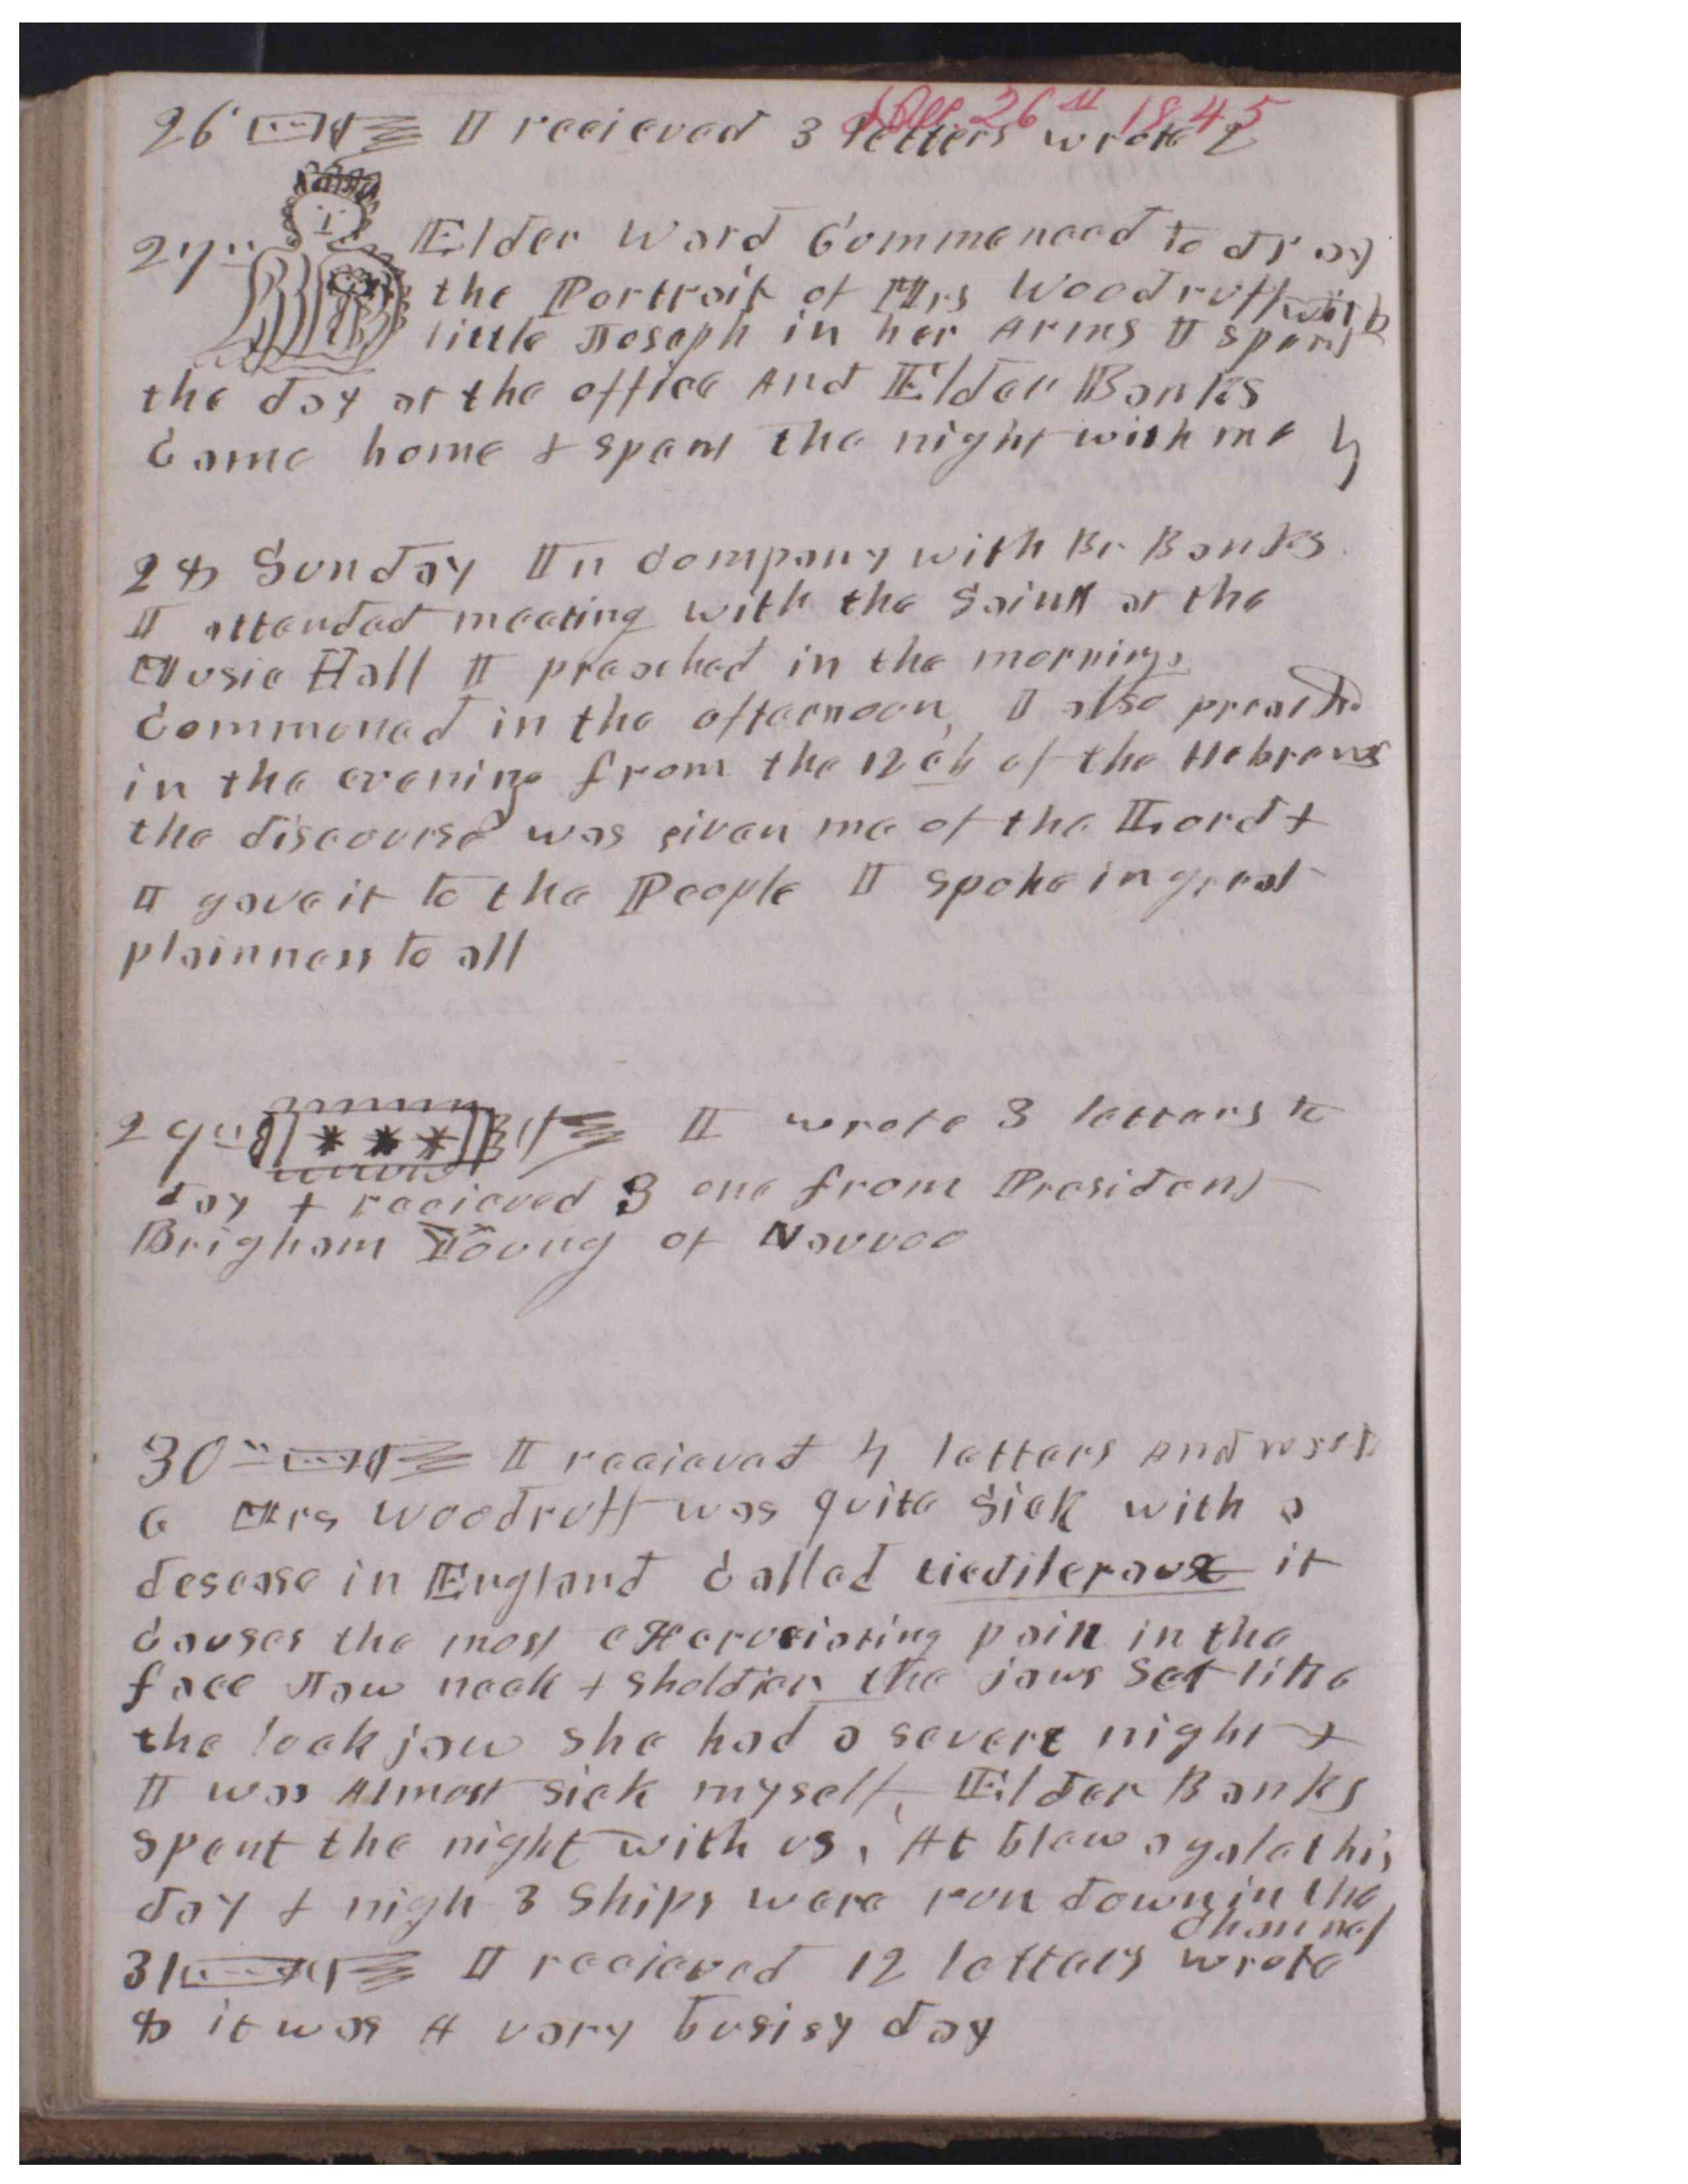 Dec. 26th 1845
26th I recieved 3 letters wrote 2
27th Elder Ward Commenced to dray
the Portrait of Mrs Woodruff with
little Joseph in her Arms I spent
the day at the office And Elder Banks
Came home & spent the night with me 4
28 Sunday In Company with Br Banks
I attended meeting with the Saints at the
Music Hall I preached in the morning
Communed in the afternoon, I also preached
in the evening from the 12 ch of the Hebrews
the discourse was given me of the Lord &
I gave it to the People I spoke in great
plainness to all
29th I wrote 3 letters to
day & recieved 3 one from President
Brigham Young of Nauvoo
30th I recieved 4 letters And wrote
6 Mrs Woodruff was quite Sick with a
desease in England Called ticdileraux it
Causes the most excruciating pain in the
face Jaw neck & sholdier the jaws Set like
the lock jaw she had a severe night &
I was Almost sick myself, Elder Banks
spent the night with us, At blew a gale this
day & nigh 3 Ships were run down in the
Channel
31 I recieved 12 letters wrote
8 it was A vary busisy day